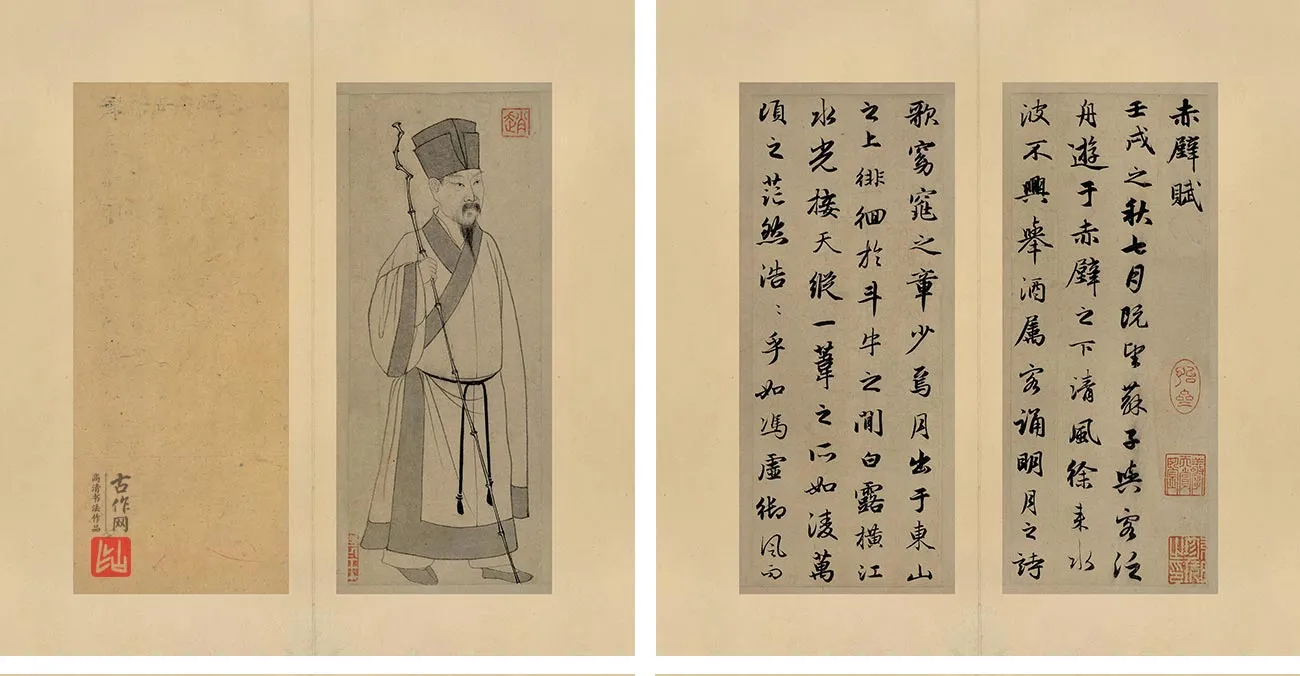 赤壁賦
壬戌之秋七月既望蘇子與客泛
舟遊于赤壁之下清風徐来水
波不興舉酒属客誦明月之詩
歌窈窕之章少焉月出于東山
之上徘徊於斗牛之間白露橫江
水光接天縱一葦之所如淩萬
頃之茫然浩〻乎如馮虛御風而
趙
古作网
高清书法作品